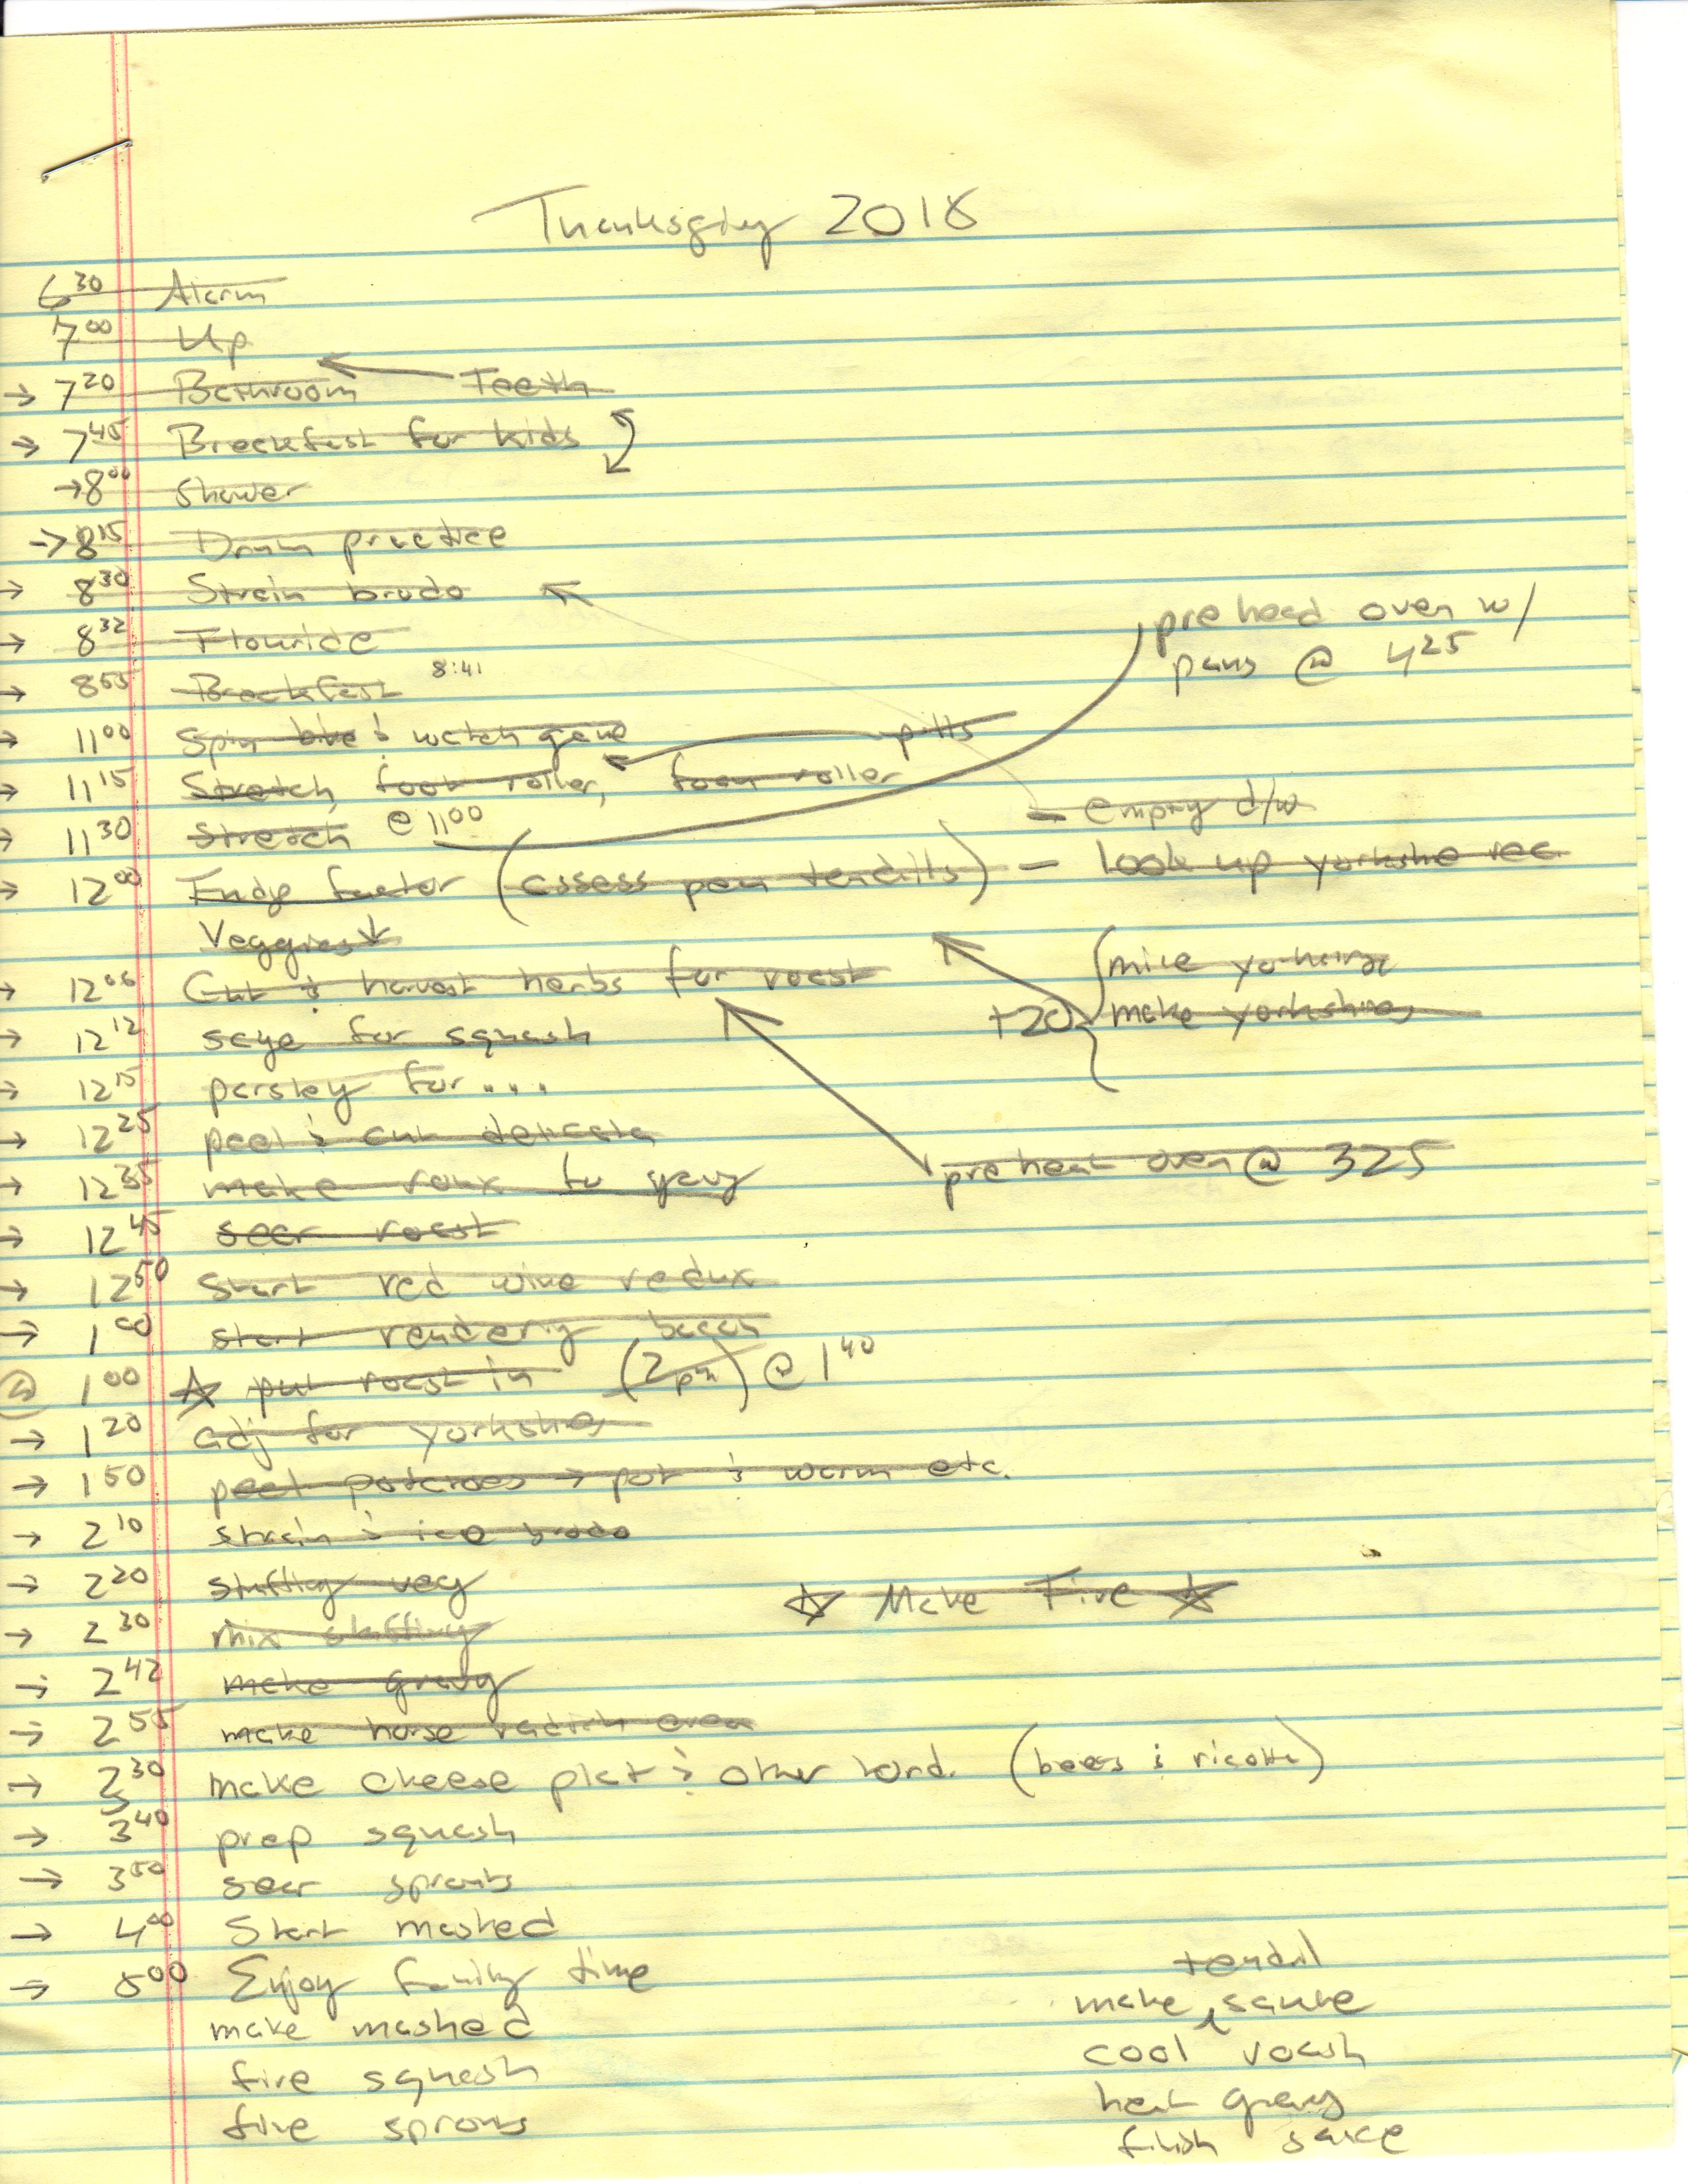 Thanksgivg 2018
6 30 Alarm
7 00 Up
→ 7 20 Bathroom ← Teeth
→ 7 45 Breckfast for kids
→ 8 00 Shower
→ 8 15 Drum practice
→ 8 30 Strain brodo
→ 8 32 Flouride
→ 8 55 Breckfast 8:41
pre head oven w/
pans @ 425
→ 11 00 Spin bike & watch game
pills
→ 11 15 Stretch, foot roller, foam roller
→ 11 30 Stretch @ 11 00
- empty d/w
→ 12 00 (assess pan) - look up yorkshire rec
Veggies ↓
→ 12 06 Cut & harvest herbs for roast
+20
make yorkshires
→ 12 12 sage for squash
→ 12 15 parsley for...
→ 12 25 peel & cut delicata
→ 12 35 make roux for gravy
preheat oven @ 325
→ 12 45 sear roast
→ 12 50 Start red wine redux
→ 1 00 start renderig bacon
@ 1 00 ☆ put roast in (2pm) @ 1 40
→ 1 20 adj for yorkshires
→ 1 50 peel potatoes → pot & warm etc.
→ 2 10 strain & ice brodo
→ 2 20 stuffing veg
☆ Make Fire ☆
→ 2 30 mix stuffing
→ 2 42 make gravy
→ 2 55 make horse radish crea
→ 3 30 make cheese plat & other hord. (bees & ricotta)
→ 3 40 prep squash
→ 3 50 sear sprouts
→ 4 00 Start mashed
→ 5 00 Enjoy family time
make mashed
fire squash
fire sprouts
make sauce
cool roast
heat gravy
finish sauce